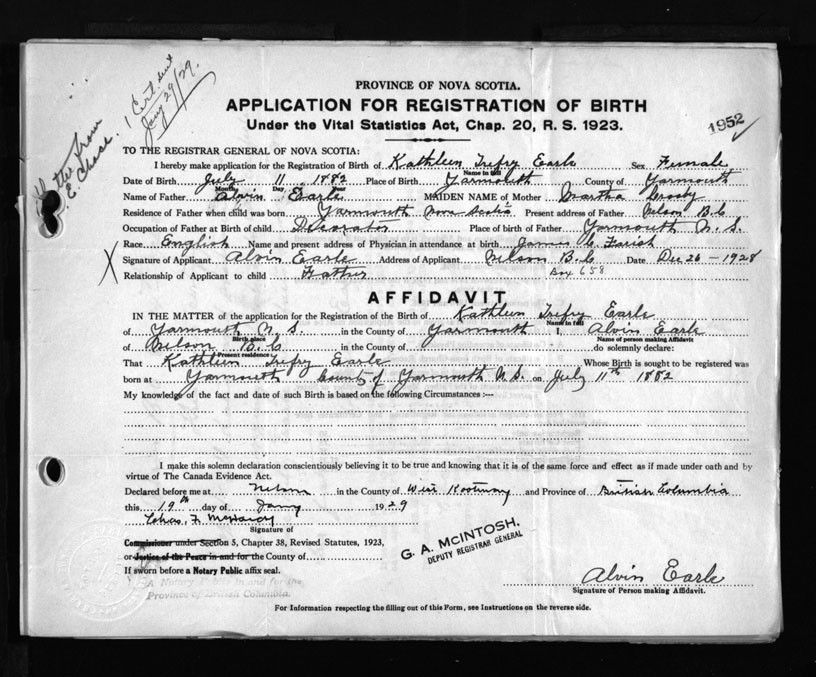 1 Cert sent
Jany 29/29.
from
E. Chase.
1952
PROVINCE OF NOVA SCOTIA.
APPLICATION FOR REGISTRATION OF BIRTH
Under the Vital Statistics Act, Chap. 20, R. S. 1923.
TO THE REGISTRAR GENERAL OF NOVA SCOTIA:
I hereby make application for the Registration of Birth of Kathleen Trefry Earle Sex Female
Name in full
Date of Birth July 11 1882 Place of Birth Yarmouth County of Yarmouth
Month Day Year
Name of Father Alvin Earle MAIDEN NAME of Mother Martha Crosby
Residence of Father when child was born Yarmouth Nova Scotia Present address of Father Nelson B.C
Occupation of Father at Birth of child Decorator Place of birth of Father Yarmouth N. S.
Race English Name and present address of Physician in attendance at birth James C Farish
Signature of Applicant Alvin Earle Address of Applicant Nelson B.C Date Dec 26 - 1928
Box 658
X
Relationship of Applicant to child Father
AFFIDAVIT
IN THE MATTER of the application for the Registration of the Birth of Kathleen Trefry Earle
Name in full
of Yarmouth N. S. in the County of Yarmouth I, Alvin Earle
Birth place Name of person making Affidavit
of Nelson B.C in the County of do solemnly declare:
Present residence
That Kathleen Trefry Earle Whose Birth is sought to be registered was
born at Yarmouth County of Yarmouth N.S. on July 11th 1882
My knowledge of the fact and date of such Birth is based on the following Circumstances :—
I make this solemn declaration conscientiously believing it to be true and knowing that it is of the same force and effect as if made under oath and by
virtue of The Canada Evidence Act.
Declared before me at Nelson in the County of West Kootenay and Province of British Columbia
this 19th day of Jany 1929
Chas. F. McHardy
Signature of
Commissioner under Section 5, Chapter 38, Revised Statutes, 1923,
or Justice of the Peace in and for the County of
If sworn before a Notary Public affix seal.
A Notary Public in and for the
Province of British Columbia.
G. A. MCINTOSH,
DEPUTY REGISTRAR GENERAL
Alvin Earle
Signature of Person making Affidavit.
For Information respecting the filling out of this Form, see Instructions on the reverse side.